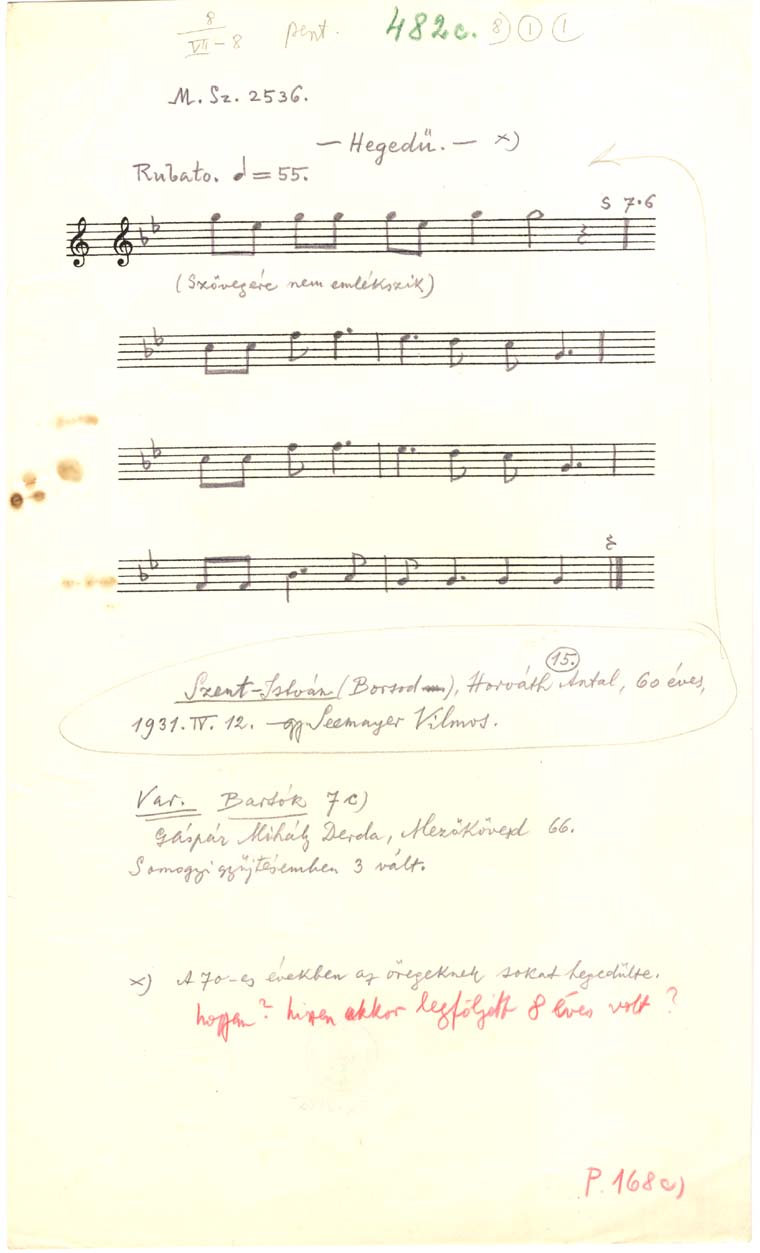 8
VII-8 pent. 482c. 8) 1 1
M. Sz. 2536.
— Hegedű. — x)
Rubato. = 55.
S 7·6
(Szövegére nem emlékszik)
15.
Szent-István (Borsod), Horváth Antal, 60 éves,
1931. IV. 12. Seemayer Vilmos.
Var. Bartók 7c)
Gáspár Mihály Derda, Mezőkövesd 66.
Somogyi gyűjtésemben 3 vált.
x) A 70-es években az öregeknek sokat hegedülte.
hogyan? hiszen akkor legföljebb 8 éves volt?
P. 168c)